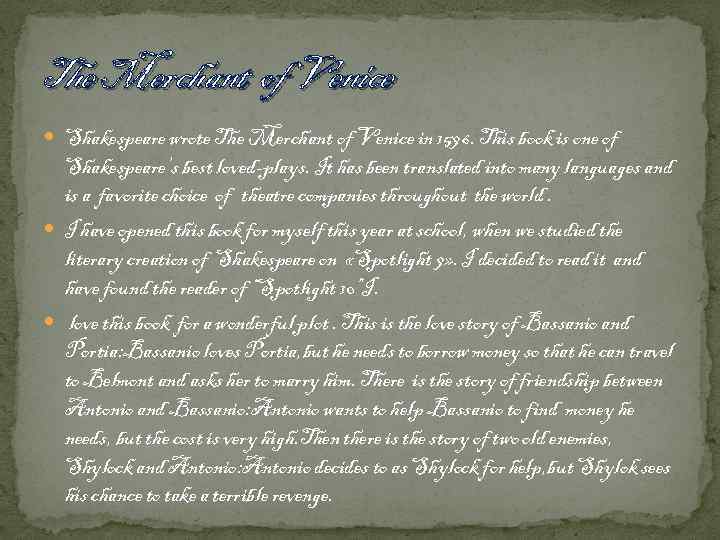 The Merchant of Venice
Shakespeare wrote The Merchant of Venice in 1596. This book is one of
Shakespeare's best loved-plays. It has been translated into many languages and
is a favorite choice of theatre companies throughout the world.
I have opened this book for myself this year at school, when we studied the
literary creation of Shakespeare on «Spotlight 9». I decided to read it and
have found the reader of "Spotlight 10"I.
love this book for a wonderful plot. This is the love story of Bassanio and
Portia:Bassanio loves Portia,but he needs to borrow money so that he can travel
to Belmont and asks her to marry him. There is the story of friendship between
Antonio and Bassanio:Antonio wants to help Bassanio to find money he
needs, but the cost is very high.Then there is the story of two old enemies,
Shylock and Antonio:Antonio decides to as Shylock for help,but Shylok sees
his chance to take a terrible revenge.